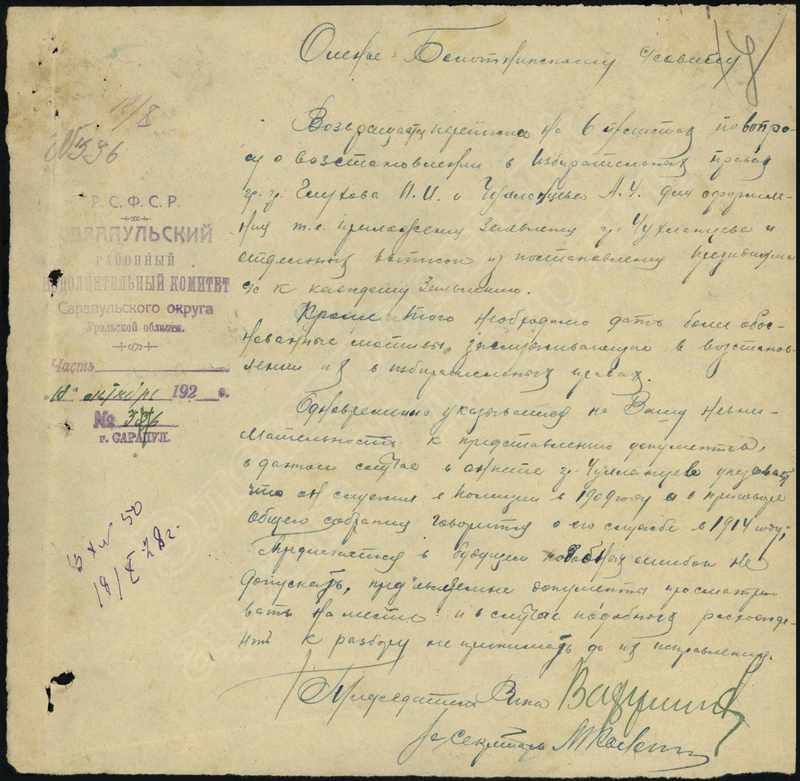 Олене-Болотнинскому с/совету
14/8
№ 336
Р. С. Ф. С. Р.
САРАПУЛЬСКИЙ
РАЙОННЫЙ
ИСПОЛНИТЕЛЬНЫЙ КОМИТЕТ
Сарапульского округа
Уральской области.
Часть
192 г.
№ 336
г. САРАПУЛ.
18/X 28 г.
Возвращается переписка на 6 листах по вопро-
су о восстановлении в избирательных правах
гр. гр. Глухова П. И. и А. У. для оформле-
ния т. е. заявлению гр. Чухланцева и
отдельных выписок из постановлению президиума
с/с к каждому заявлению.
Кроме того необходимо дать более обос-
нованные мотивы, в восстанов-
лении их в избирательных правах.
Одновременно указывается на Вашу невни-
мательность к представлению документов,
в данном случае в анкете гр. Чухланцева указывает
что он служил в полиции в 1909 году а в приговоре
общего собрания говорится о его службе в 1914 году,
Предлагается в будущем ошибок не
допускать, пред'являемые документы просматри-
вать на месте и в случае подобных расхожде-
ний к разбору не принимать до их исправления.
Председатель Рика
Секретарь